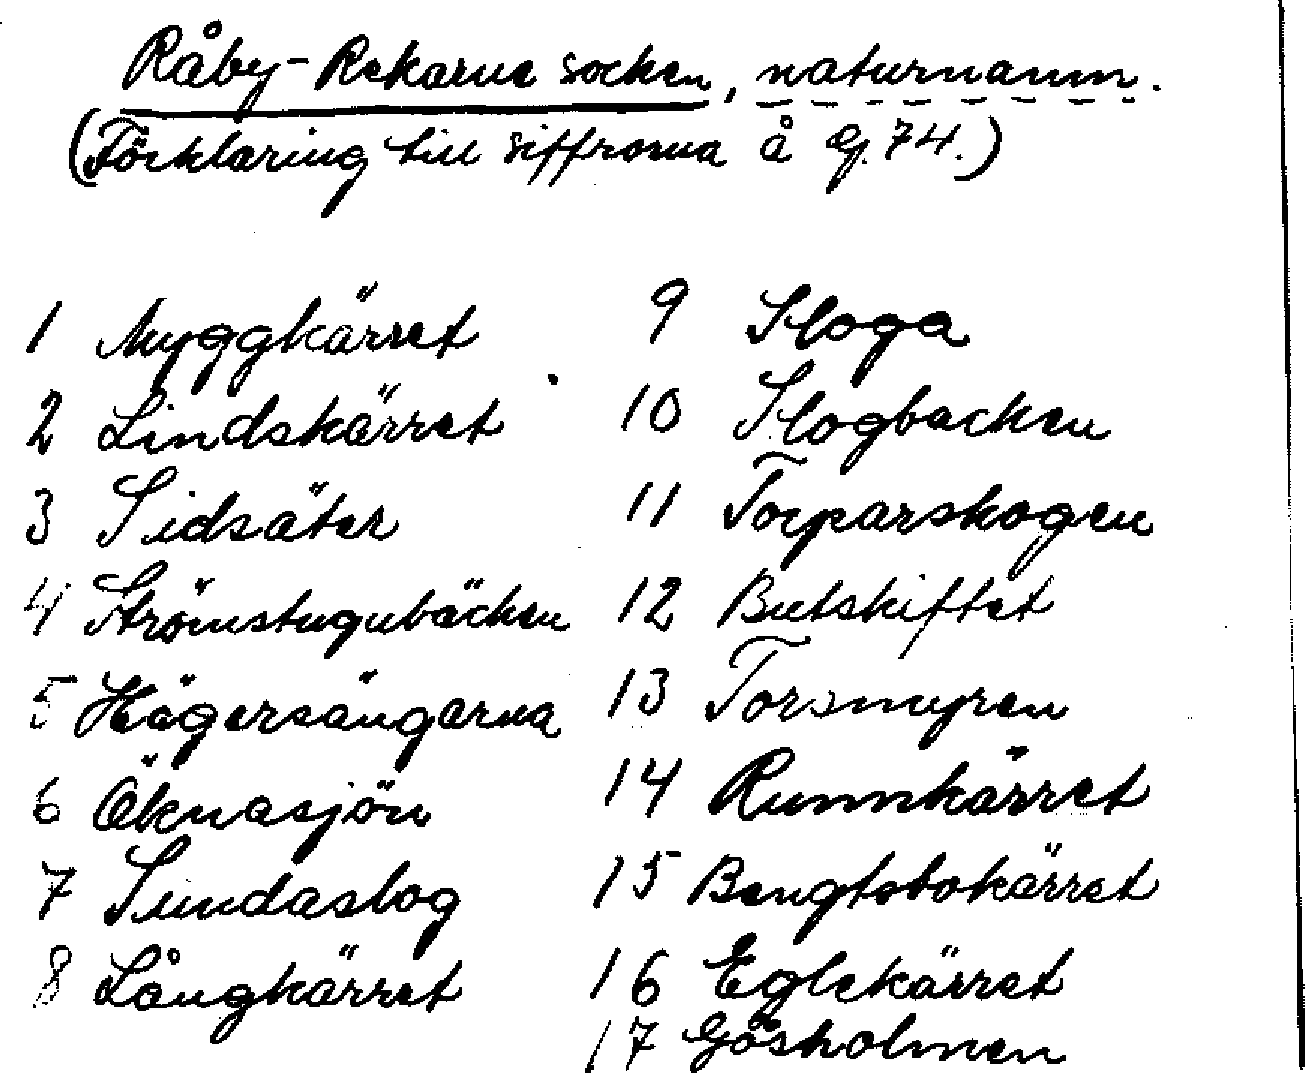 Råby-Rekarne socken, naturnamn.
(Förklaring till siffrorna å Gj. 74.)
1 Myggkärret
2 Lindskärret
3 Sidsäter
4 Strömstugubäcken
5 Hägersängarna
6 Öknasjön
7 Sundaslog
8 Långkärret
9 Sloga
10 Slogbacken
11 Torparskogen
12 Butskiftet
13 Torsmyren
14 Runnkärret
15 Bengtsbokärret
16 Eglekärret
17 Gösholmen